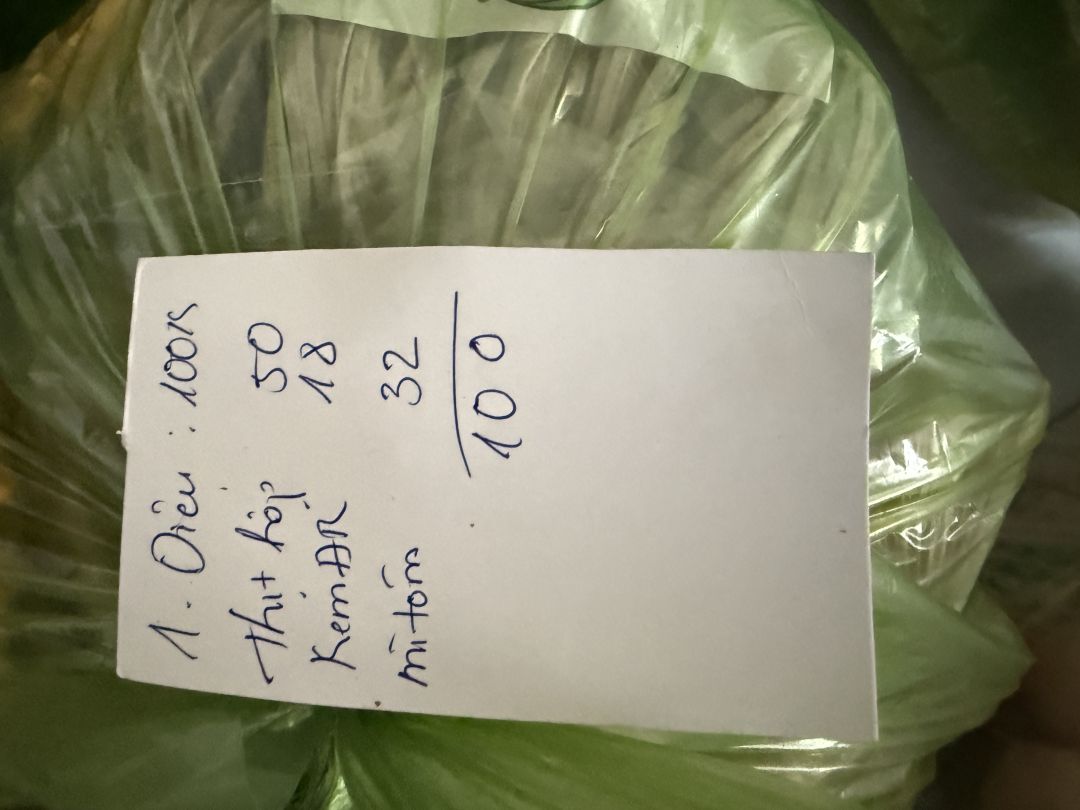 1. Diệu : 100K
Thịt hộp 50
Kem ĐR 18
mì tôm 32
100